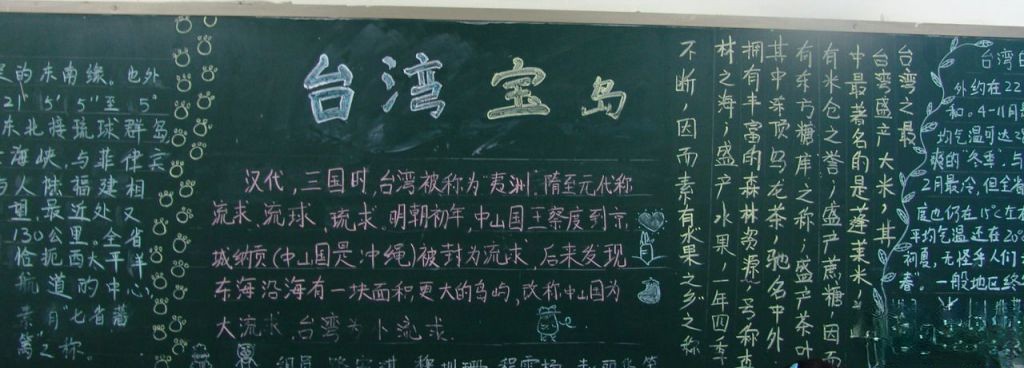 台湾宝岛
的东南缘,也外
21°15′5″至 5°
东北接琉球群岛
海峡,与菲律宾
人陆福建相
望,最近处又
130公里。全省
扼西太平洋
航道的中心,
素有"七省藩
篱"之称。
汉代,三国时,台湾被称为"夷洲",隋至元代称
流求、流球、琉求。明朝初年,中山国王察度到京
城纳贡(中山国是冲绳)被封为流求,后来发现
东海沿海有一块面积更大的岛屿,改称中山国为
大流求,台湾为小流求.
台湾之最
台湾盛产大米,其
中最著名的是蓬莱米,
有米仓之誉;盛产蔗糖,因而
有东方糖库之称;盛产茶叶
其中冻顶乌龙茶,驰名中外
拥有丰富的森林资源,号称
材之海;盛产水果,一年四季
不断,因而素有"水果之乡"之称
台湾
外约在22
和。4-11月
均气温可达2
爽的冬季,与
2月最冷,但全省
度也仍在15℃左
平均气温还在20
初夏,无怪乎人们
春"。一般地区终
组员